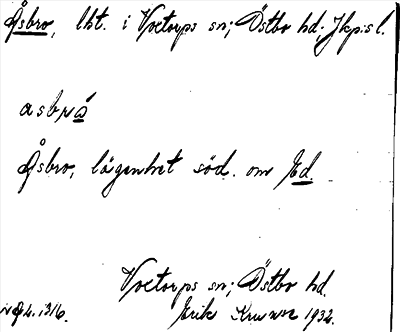 Åsbro, lht. i Voetorps sn; Östbo hd; Jkpg:s l.
asbró
Åsbro, lägenhet söd. om Ed.
Voetorps sn; Östbo hd.
Erik 1932.